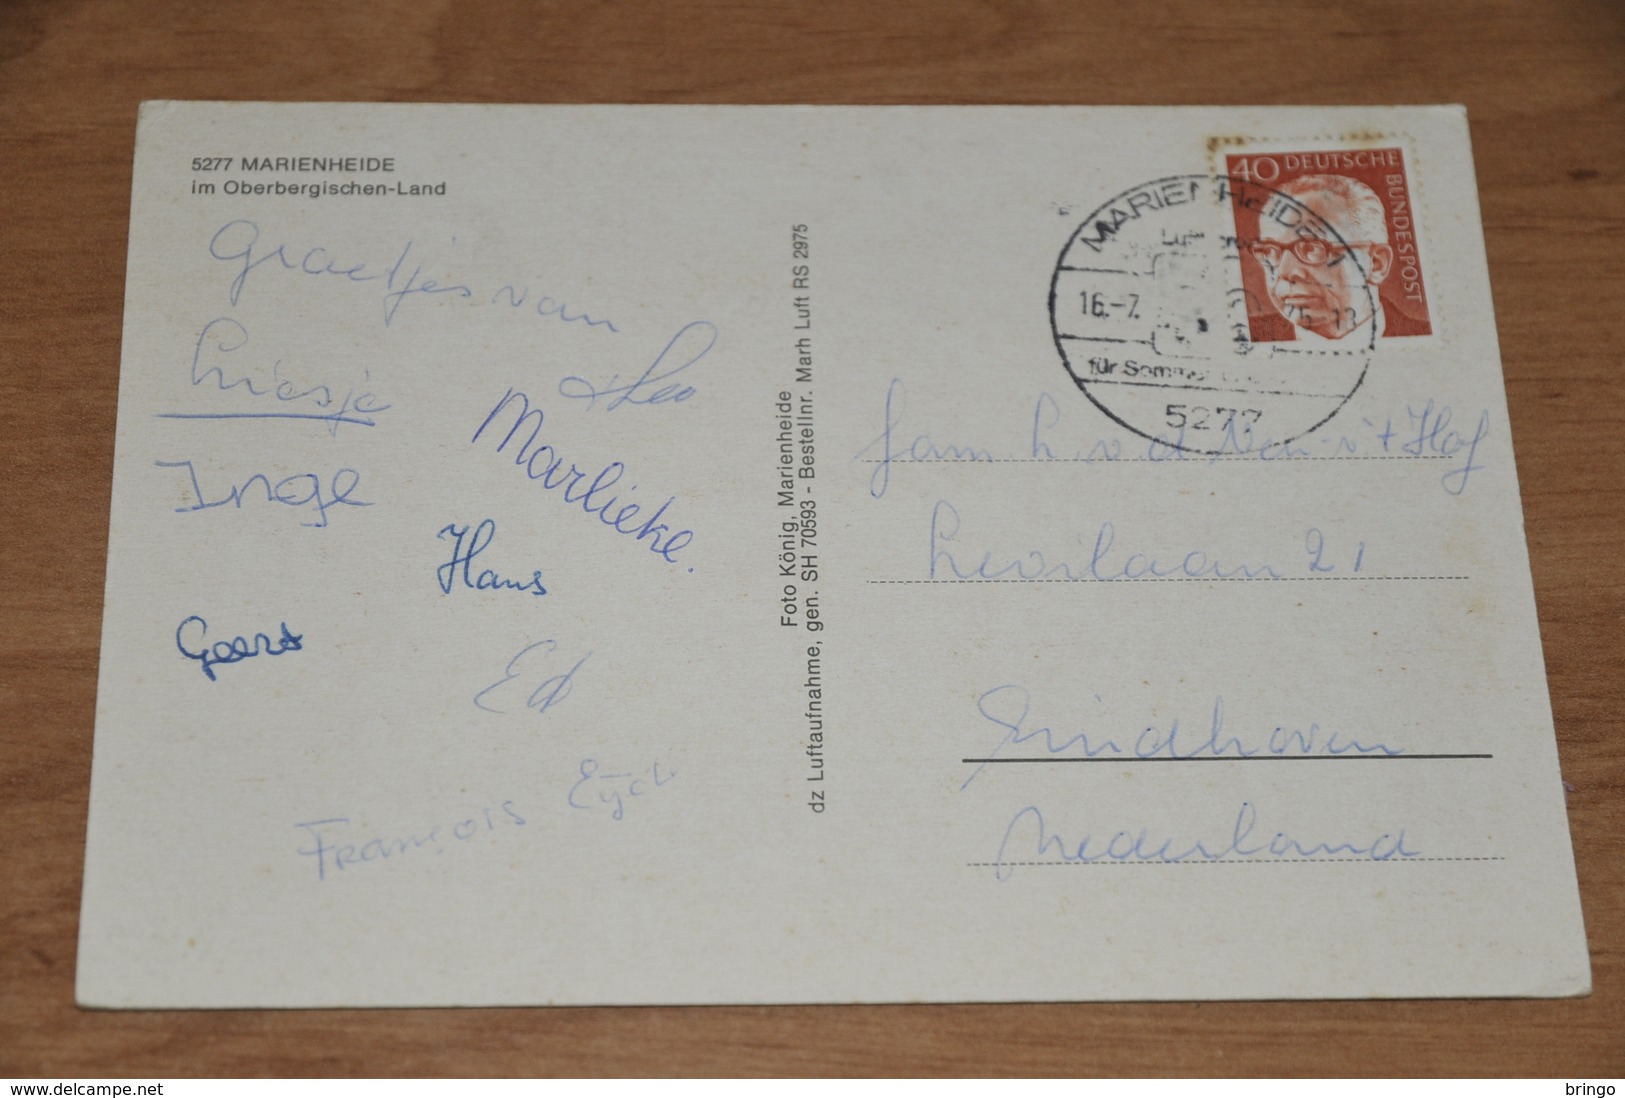 5277 MARIENHEIDE
im Oberbergischen-Land
Graetjes van
Liesje
Leo
Marlieke.
Inge
Hans
Geert
Ed
François Eyck
Foto König, Marienheide
dz Luftaufnahme, gen. SH 70593 - Bestellnr. Marh Luft RS 2975
40 DEUTSCHE
BUNDESPOST
MARIENHEIDE 1
16.-7. 75-13
für
5277
fam h v d Ven - v 't Hof
21
Eindhoven
Nederland
delcampe.net
bringo